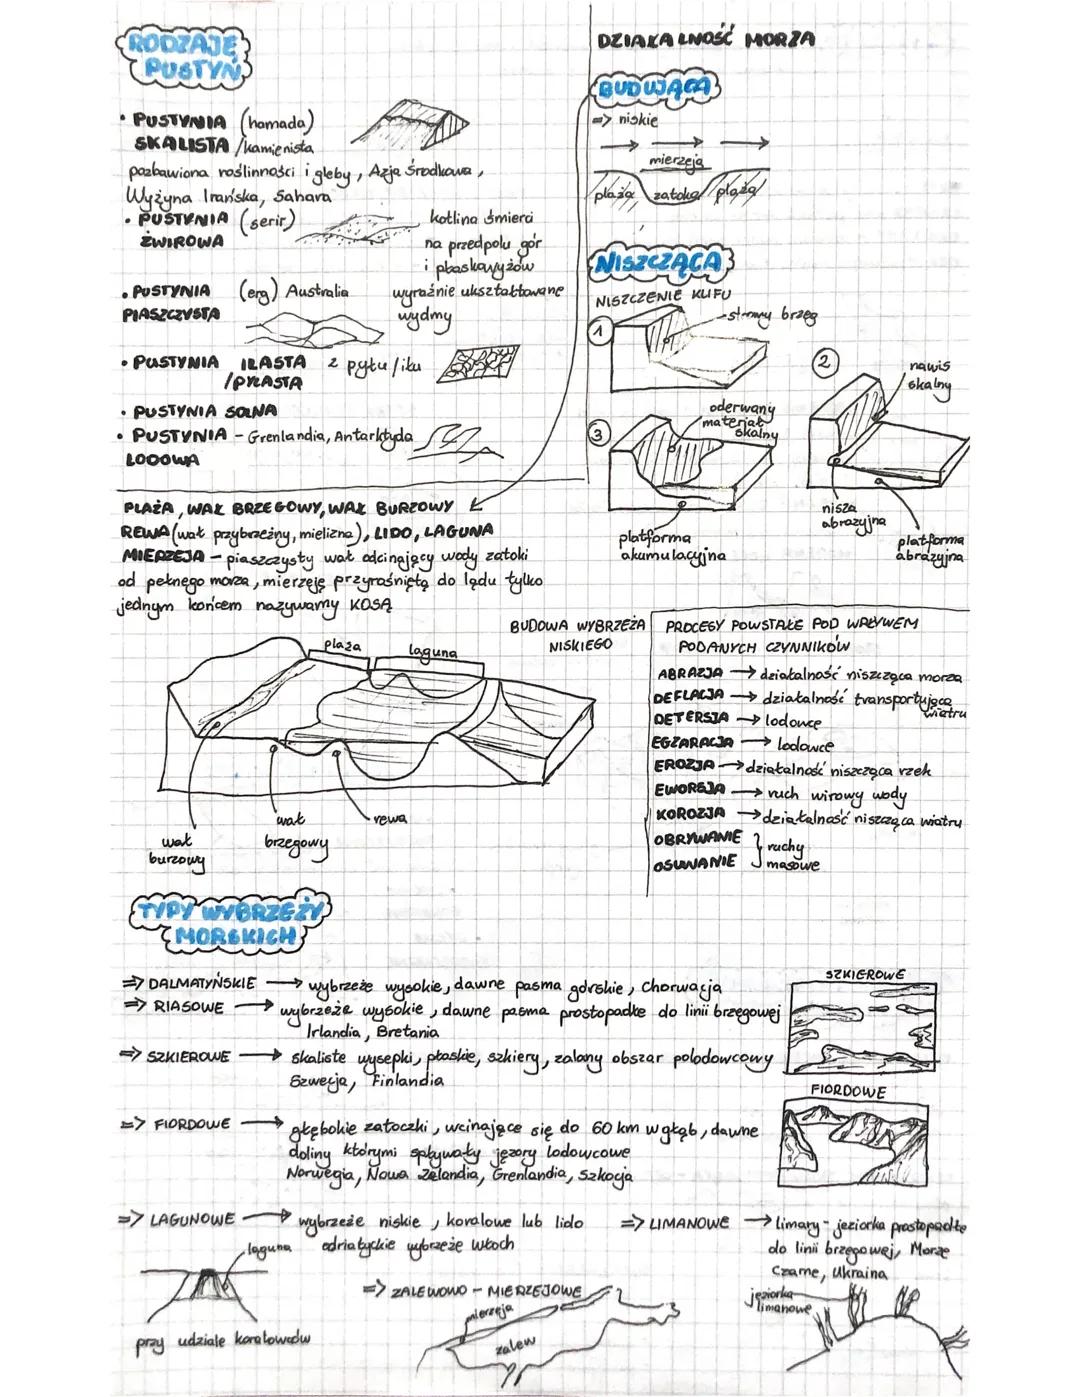 RODZAJE
PUSTYŃ
• PUSTYNIA (hamada)
SKALISTA /kamienista
pozbawiona roślinności i gleby, Azja Środkowa,
Wyżyna Irańska, Sahara
• PUSTYNIA (serir)
ŻWIROWA
kotlina śmierci
na przedpolu gór
i płaskowyżów
• PUSTYNIA (erg) Australia
PIASZCZYSTA
wyraźnie ukształtowane
wydmy
• PUSTYNIA ILASTA z pyłu/iłu
/PYLASTA
• PUSTYNIA SOLNA
• PUSTYNIA - Grenlandia, Antarktyda
LODOWA
DZIAŁALNOŚĆ MORZA
BUDUJĄCA
=> niskie
mierzeja
plaża zatoka plaża
NISZCZĄCA
NISZCZENIE KLIFU
1
stromy brzeg
2
nawis
skalny
nisza
abrazyjna
platforma
abrazyjna
3
oderwany
materiał
skalny
platforma
akumulacyjna
PLAŻA, WAŁ BRZEGOWY, WAŁ BURZOWY
REWA (wał przybrzeżny, mielizna), LIDO, LAGUNA
MIERZEJA - piaszczysty wał odcinający wody zatoki
od pełnego morza, mierzeję przyrośniętą do lądu tylko
jednym końcem nazywamy KOSĄ
BUDOWA WYBRZEŻA
NISKIEGO
plaża
laguna
wał
burzowy
wał
brzegowy
rewa
PROCESY POWSTAŁE POD WPŁYWEM
PODANYCH CZYNNIKÓW
ABRAZJA → działalność niszcząca morza
DEFLACJA → działalność transportująca
wiatru
DETERSJA → lodowce
EGZARACJA → lodowce
EROZJA → działalność niszcząca rzek
EWORSJA → ruch wirowy wody
KOROZJA → działalność niszcząca wiatru
OBRYWANIE } ruchy
OSUWANIE masowe
TYPY WYBRZEŻY
MORSKICH
=> DALMATYŃSKIE → wybrzeże wysokie, dawne pasma górskie, Chorwacja
=> RIASOWE → wybrzeże wysokie, dawne pasma prostopadłe do linii brzegowej
Irlandia, Bretania
=> SZKIEROWE → skaliste wysepki, płaskie, szkiery, zalany obszar polodowcowy
Szwecja, Finlandia
SZKIEROWE
=> FIORDOWE → głębokie zatoczki, wcinające się do 60 km w głąb, dawne
doliny którymi spływały jęzory lodowcowe
Norwegia, Nowa Zelandia, Grenlandia, Szkocja
FIORDOWE
=> LAGUNOWE → wybrzeże niskie, koralowe lub lido
adriatyckie wybrzeże Włoch
laguna
przy udziale koralowców
=> ZALEWOWO - MIERZEJOWE
mierzeja
zalew
=> LIMANOWE → limany - jeziorka prostopadłe
do linii brzegowej, Morze
Czarne, Ukraina
jeziorka
limanowe